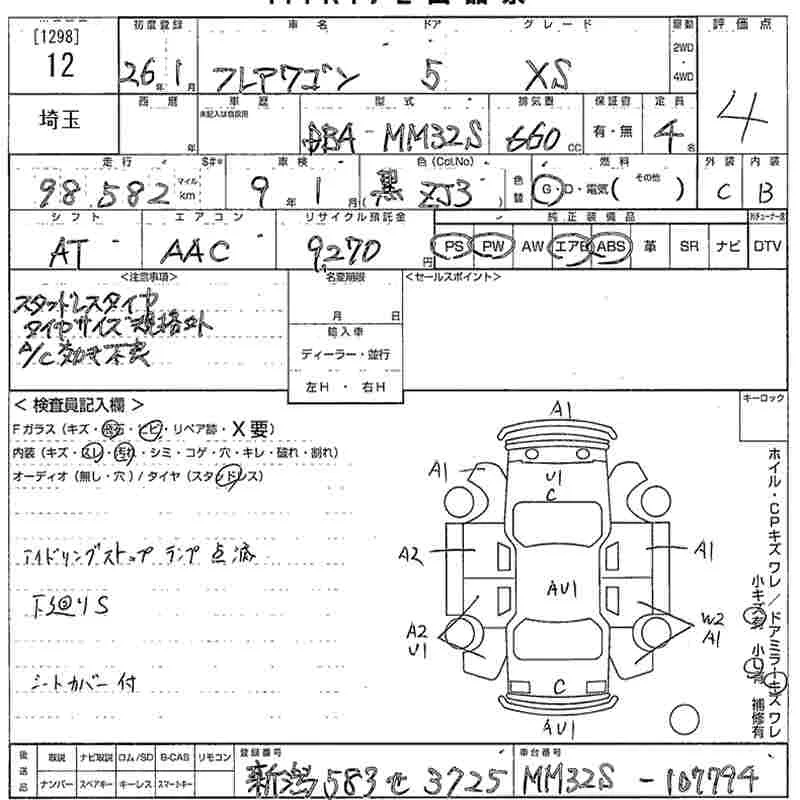 [1298]
12
埼玉
初度登録 車名 ドア グレード 駆動 評価点
26年1月 フレアワゴン 5 XS 2WD・4WD 4
西暦 車歴 型式 排気量 保証書 定員
年 未記入は自家用 DBA-MM32S 660cc 有・無 4名
走行 S#* 車検 色(Col.No) 燃料 外装 内装
98,582 マイル km 9年1月 黒 ZJ3 色替 G・D・電気( その他 ) C B
シフト エアコン リサイクル預託金 純正装備品
AT AAC 9,270円 PS PW AW エアB ABS 革 SR ナビ DTV
<注意事項> 名変期限 <セールスポイント>
スタッドレスタイヤ
タイヤサイズ規格外 月 日
A/C効き不良 輸入車
ディーラー・並行
左H・右H
<検査員記入欄> キーロック
Fガラス(キズ・飛石・ヒビ・リペア跡・X要)
内装(キズ・スレ・汚れ・シミ・コゲ・穴・キレ・破れ・割れ)
オーディオ(無し・穴)/タイヤ(スタッドレス)
アイドリングストップ ランプ 点滅
下廻りS
シートカバー付
A1
A1 U1
C
A2 A1
AU1
A2 W2
U1 A1
C
AU1
ホイル・CPキズ ワレ/ドアミラーキズ ワレ
小キズ有 小U有 補修有
後送品 取説 ナビ取説 ロム/SD B-CAS リモコン 登録番号 車台番号
ナンバー スペアキー キーレス スマートキー 新潟 583 せ 3725 MM32S-107794